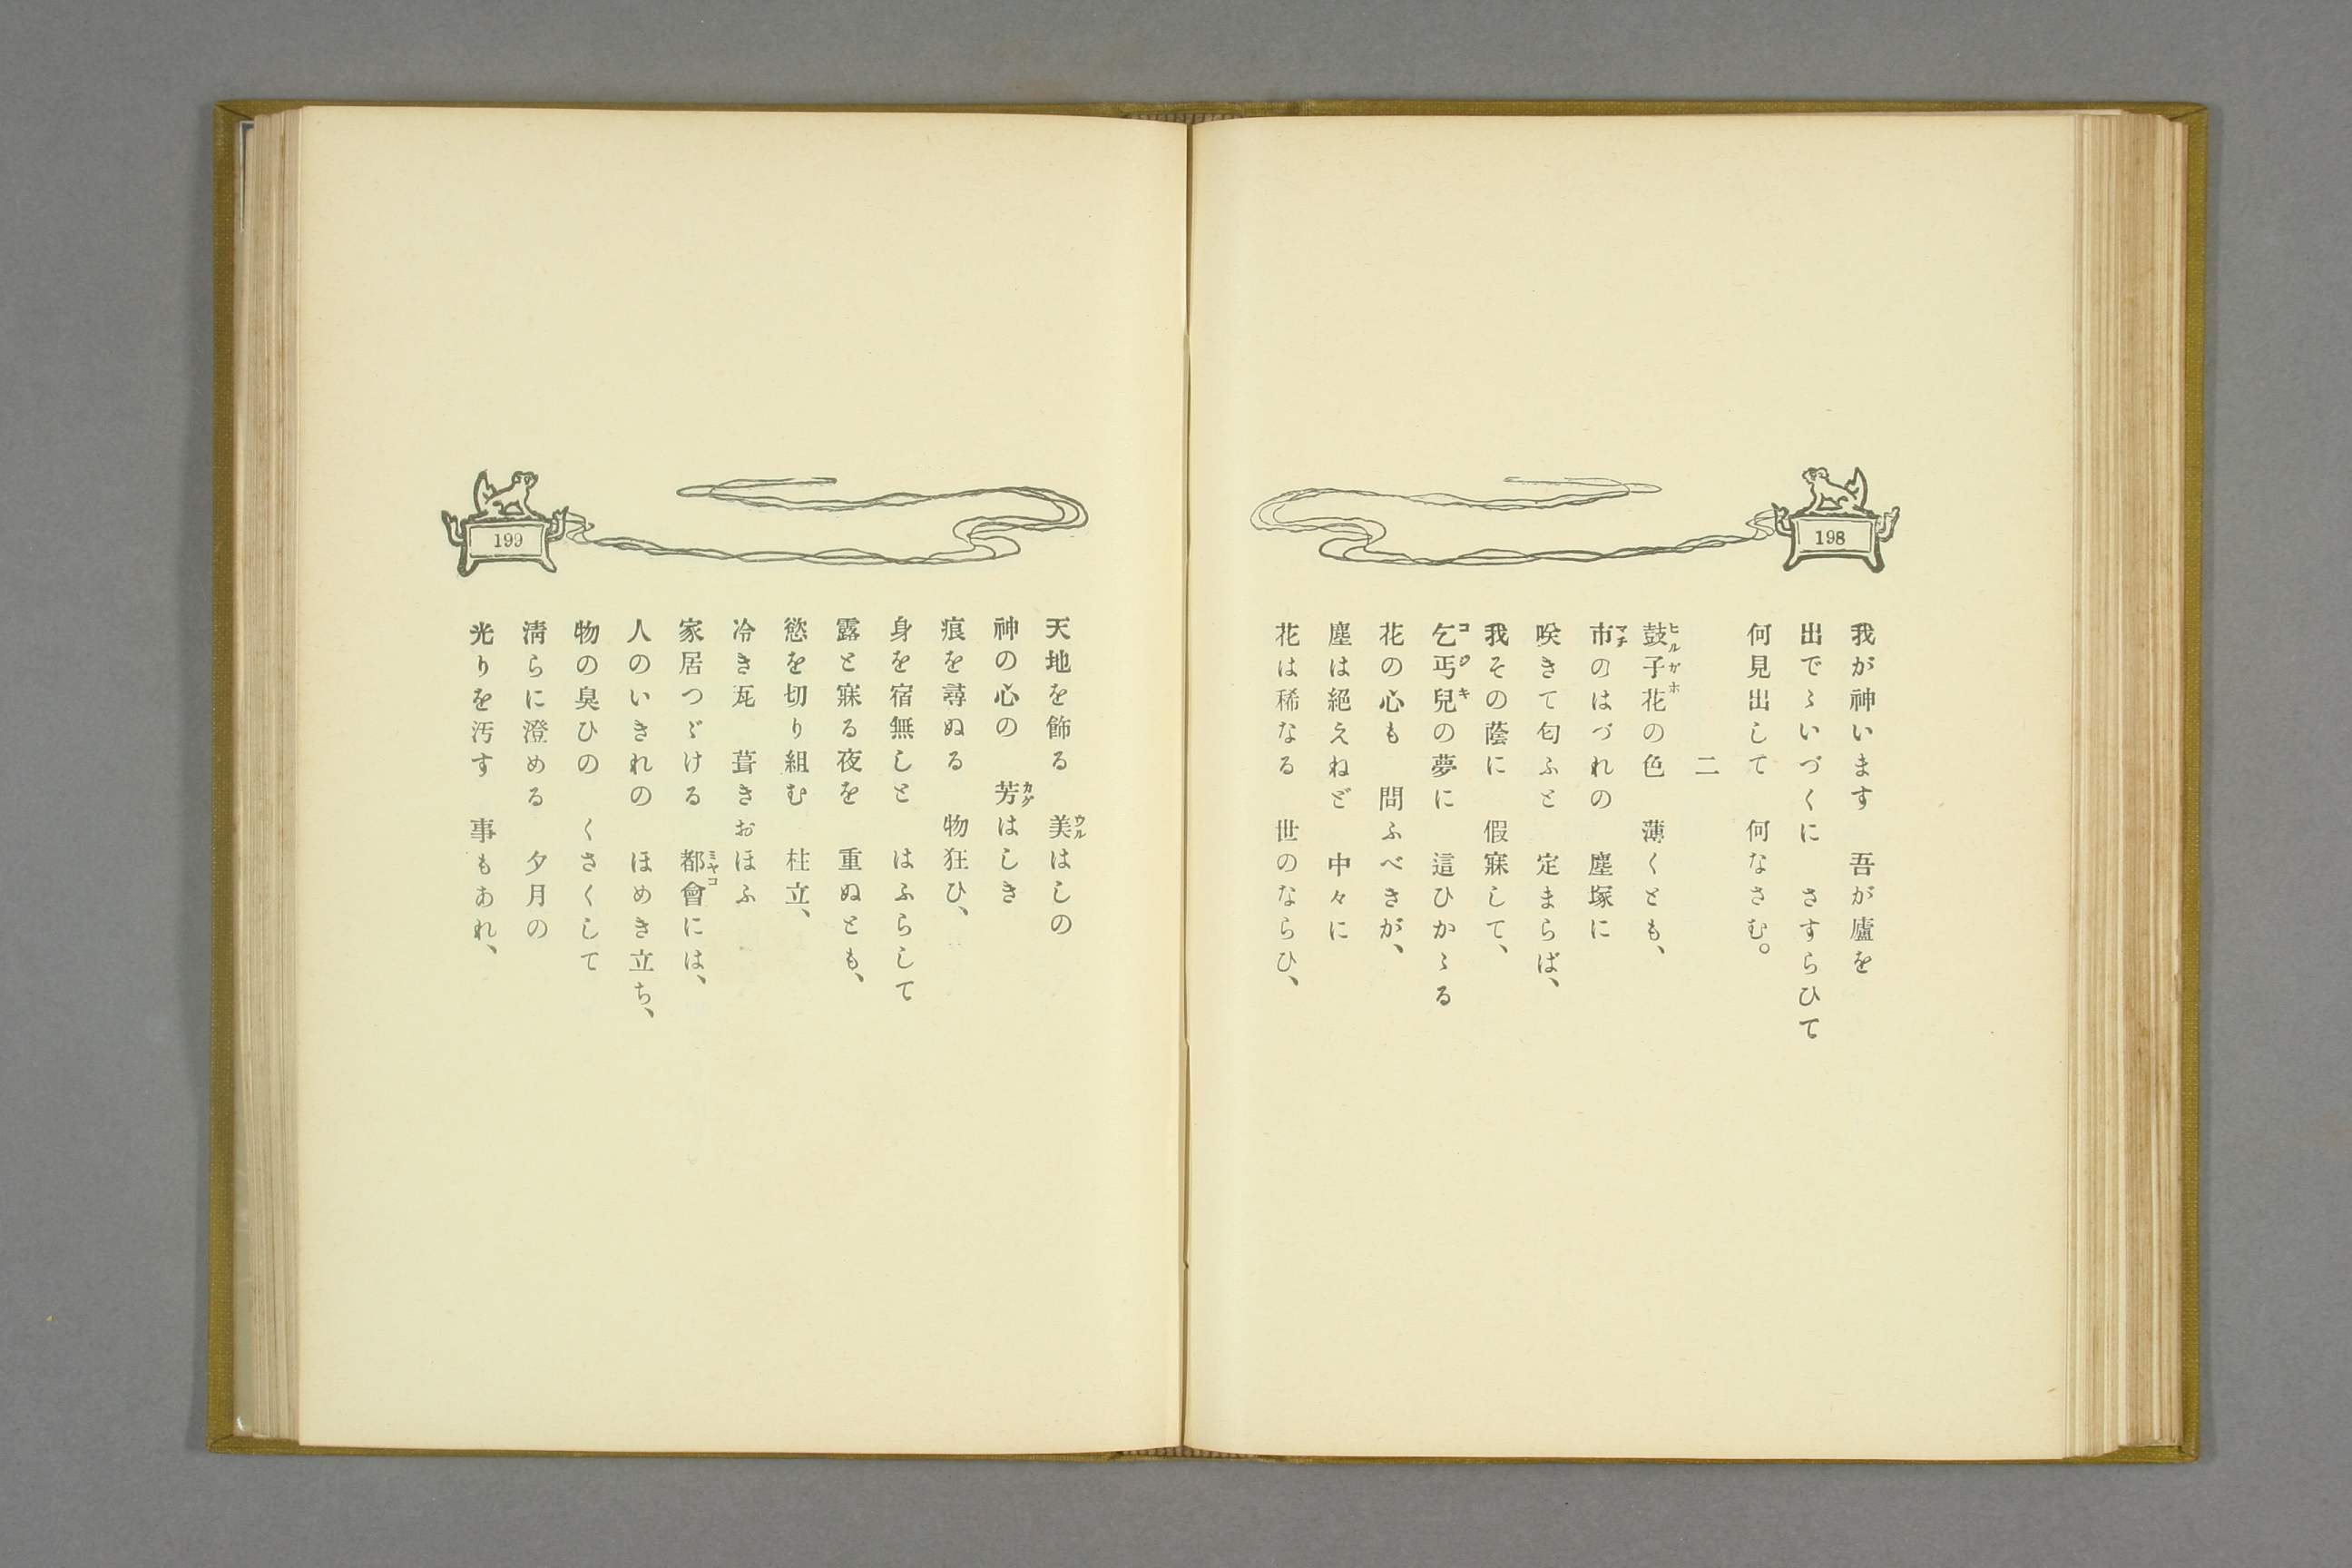 198
我が神います　吾が廬を
出でゝいづくに　さすらひて
何見出して　何なさむ。
二
鼓子花の色　薄くとも、
市のはづれの　塵塚に
咲きて匂ふと　定まらば、
我その蔭に　假寐して、
乞丐兒の夢に　這ひかゝる
花の心も　問ふべきが、
塵は絕えねど　中々に
花は稀なる　世のならひ、
199
天地を飾る　美はしの
神の心の　芳はしき
痕を尋ぬる　物狂ひ、
身を宿無しと　はふらして
露と寐る夜を　重ぬとも、
慾を切り組む　柱立、
冷き瓦　葺きおほふ
家居つゞける　都會には、
人のいきれの　ほめき立ち、
物の臭ひの　くさくして
淸らに澄める　夕月の
光りを汚す　事もあれ、